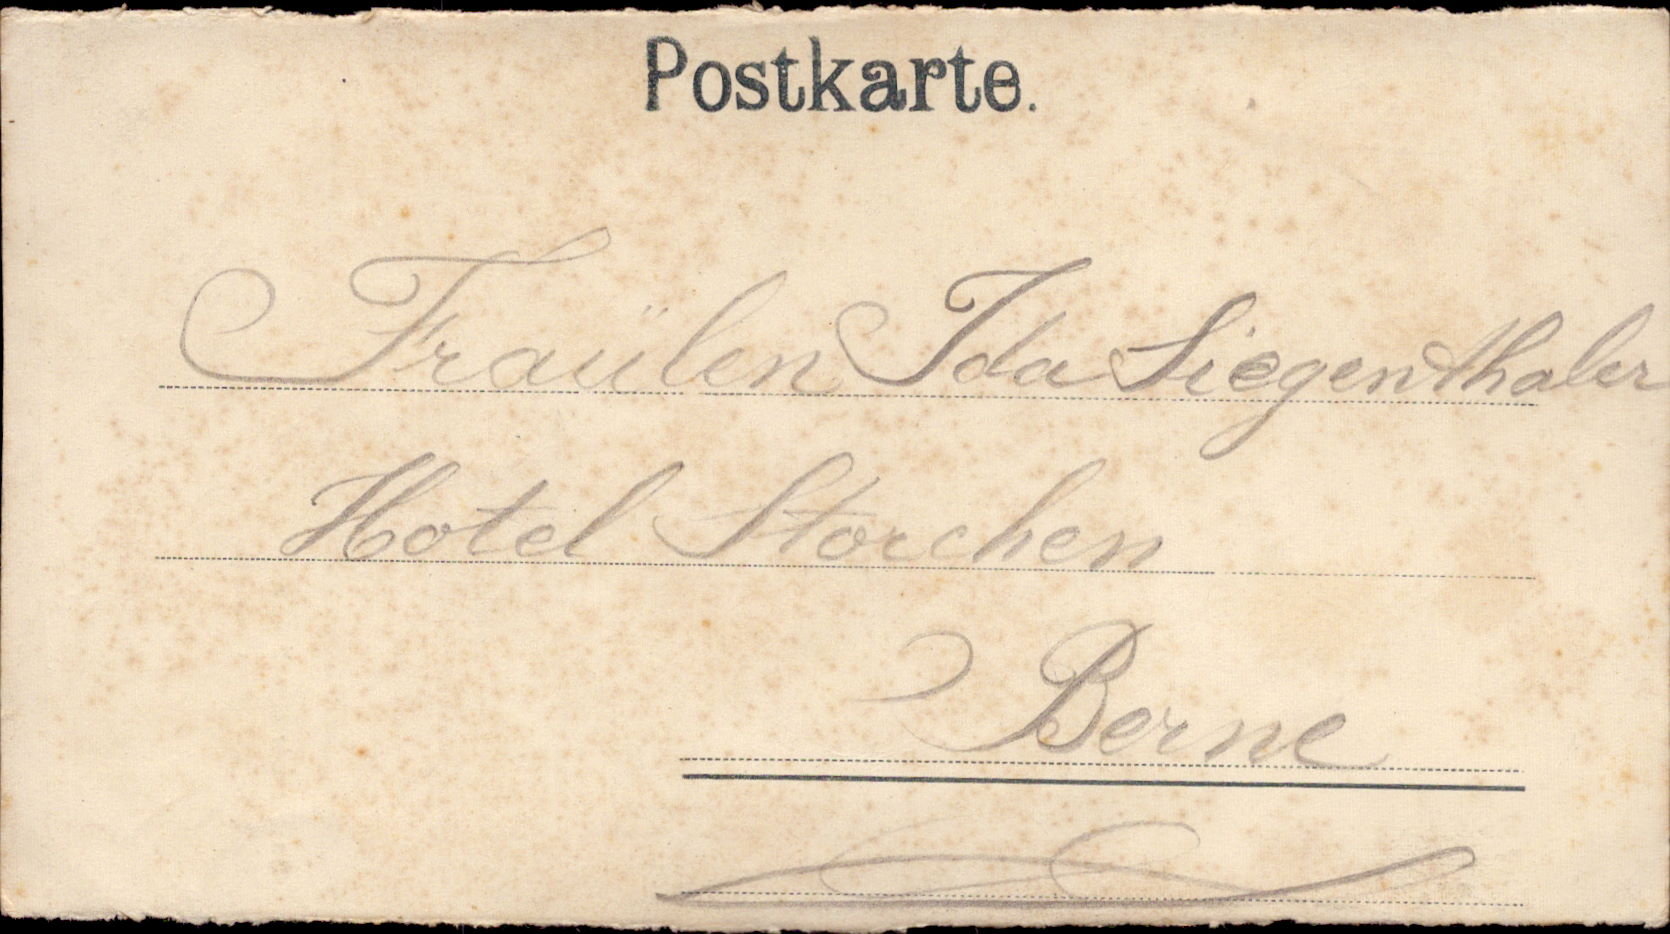 Postkarte.
Fraülen Ida Siegenthaler
Hotel Storchen
Berne